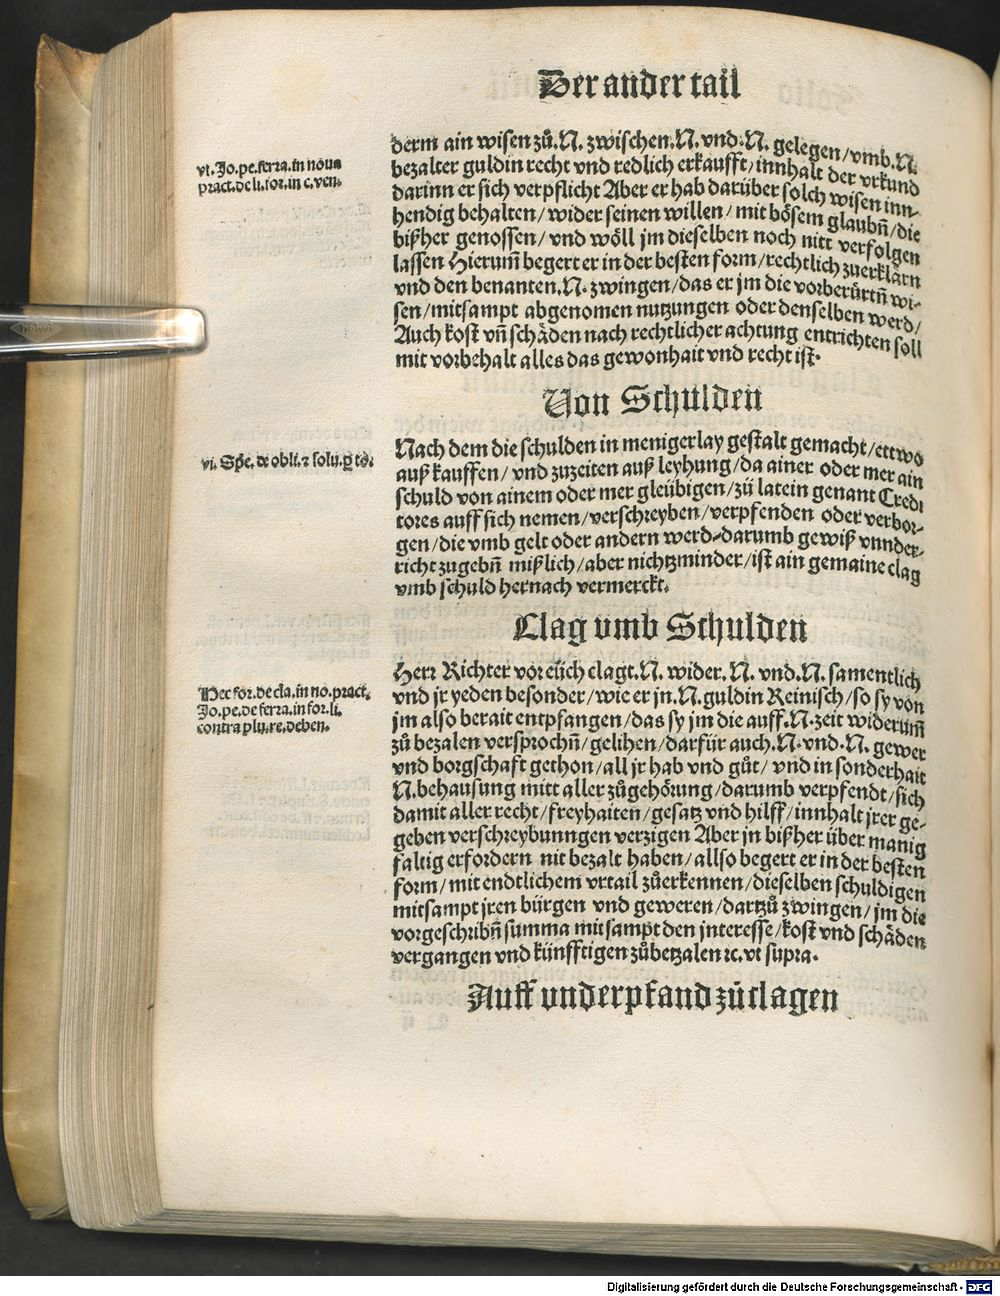 Der ander tail
derm ain wisen zů. N. zwischen. N. vnd. N. gelegen/vmb. N.
bezalter guldin recht vnd redlich erkaufft/innhalt der vrkund
darinn er sich verpflicht Aber er hab darüber solch wisen inn-
hendig behalten/wider seinen willen/mit bösem glaubñ/die
bißher genossen/vnd wöll jm dieselben noch nitt verfolgen
lassen Hierum̄ begert er in der besten form/rechtlich zuerklärn
vnd den benanten. N. zwingen/das er jm die vorberürtñ wi-
sen/mitsampt abgenomen nutzungen oder denselben werd/
Auch kost vñ schäden nach rechtlicher achtung entrichten soll
mit vorbehalt alles das gewonhait vnd recht ist.
vt. Jo. pe. ferra. in noua
pract. de li. for. in c. ven.
Von Schulden
Nach dem die schulden in menigerlay gestalt gemacht/ettwo
auß kauffen/vnd zuzeiten auß leyhung/da ainer oder mer ain
schuld von ainem oder mer gleübigen/zü latein genant Credi
tores auff sich nemen/verschreyben/verpfenden oder verbor-
gen/die vmb gelt oder andern werd-darumb gewiß vnnder-
richt zugebñ mißlich/aber nichtzminder/ist ain gemaine clag
vmb schuld hernach vermerckt.
vi. Spe. de obli. ⁊ solu.
Clag vmb Schulden
Herr Richter vor eüch clagt. N. wider. N. vnd. N. samentlich
vnd jr yeden besonder/wie er jn. N. guldin Reinisch/so sy von
jm also berait entpfangen/das sy jm die auff. N. zeit widerum̄
zů bezalen versprochñ/gelihen/darfür auch. N. vnd. N. gewer
vnd borgschaft gethon/all jr hab vnd gůt/vnd in sonderhait
N. behausung mitt aller zůgehörung/darumb verpfendt/sich
damit aller recht/freyhaiten/gesatz vnd hilff/innhalt jrer ge-
geben verschreybunngen verzigen Aber jn bißher über manig
faltig erfordern nit bezalt haben/allso begert er in der besten
form/mit endtlichem vrtail zůerkennen/dieselben schuldigen
mitsampt jren bürgen vnd geweren/dartzů zwingen/jm die
vorgeschribñ summa mitsampt den jnteresse/kost vnd schäden
vergangen vnd künfftigen zůbetzalen ⁊c. vt supra.
Hec for. de cla. in no. pract.
Jo. pe. de ferra. in for. li.
contra plu. re. deben.
Auff vnderpfand zůclagen
Digitalisierung gefördert durch die Deutsche Forschungsgemeinschaft - DFG